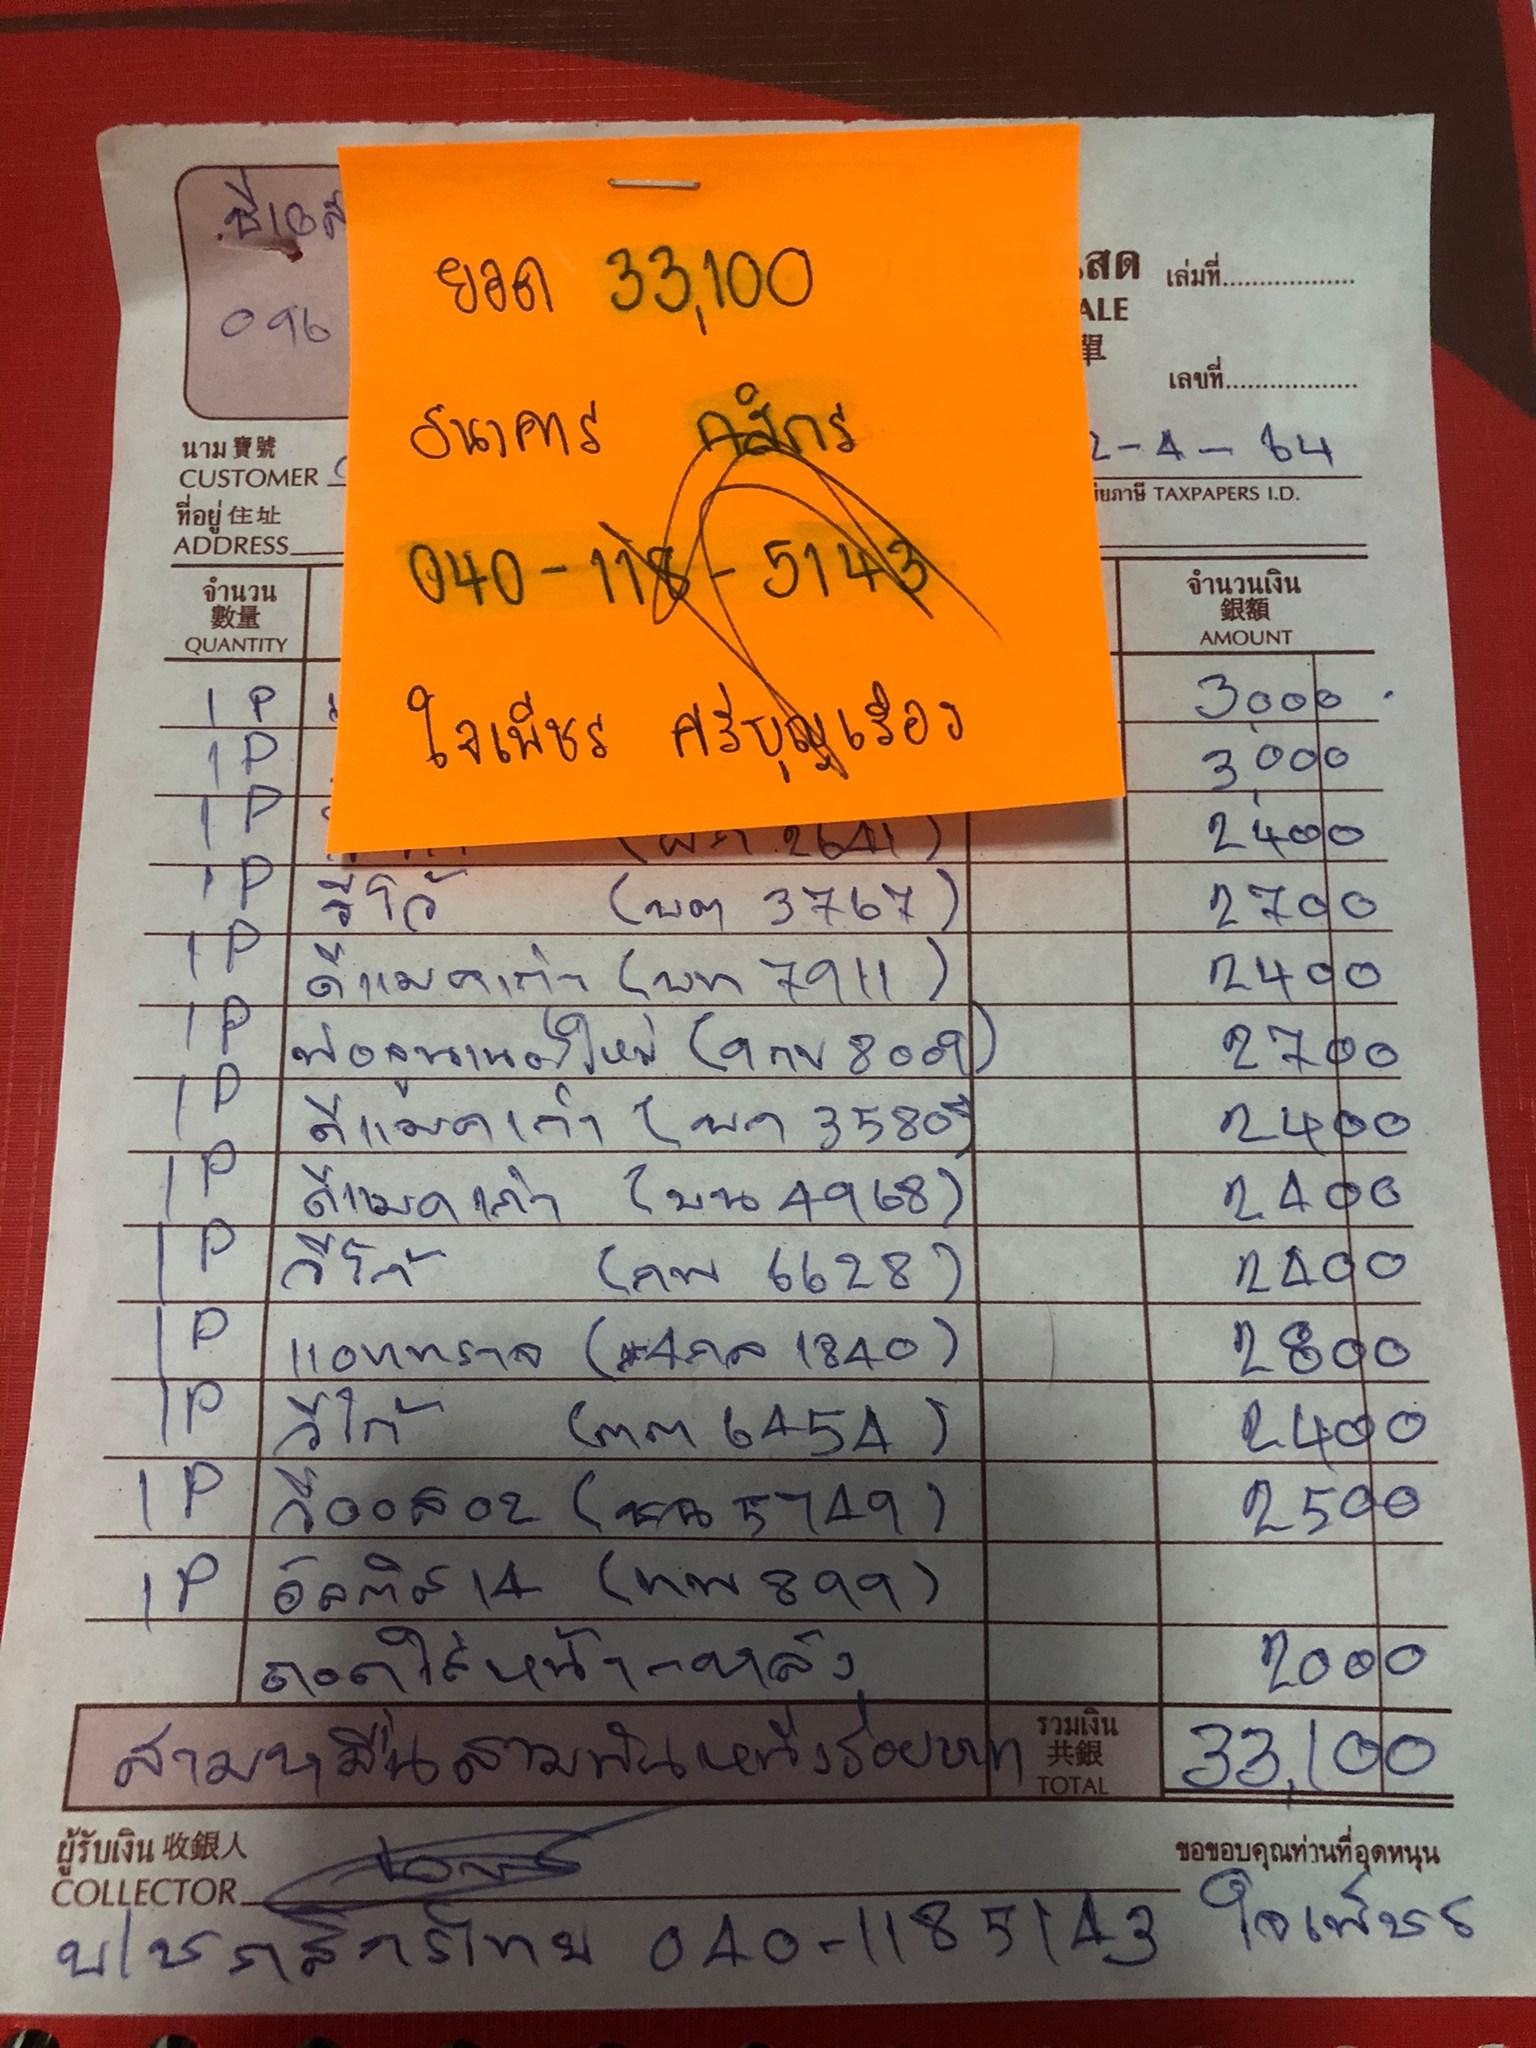 ยอด 33,100
ธนาคาร กสิกร
040-118-5143
ใจเพีชร ศรีบุญเรือง
096
สด เล่มที่
ALE
單
เลขที่
นาม 寶號
CUSTOMER
2-4-64
ที่อยู่ 住址
ADDRESS
ภาษี TAXPAPERS I.D.
จำนวน จำนวนเงิน
數量 銀額
QUANTITY AMOUNT
1 P 3,000
1 P 3,000
1 P 2641) 2400
1 P วีโก้ (บต 3767) 2700
1 P ดีแมคเก่า (บท 7911) 2400
1 P 8009) 2700
1 P ดีแมคเก่า (บต 3580) 2400
1 P ดีแมคเก่า (บน 4968) 2400
1 P วีโก้ (กพ 6628) 2400
1 P แอททราจ 1840) 2800
1 P วีโก้ (ตต 6454) 2400
1 P วีออส02 5749) 2500
1 P อัลติส14 (ทพ 899)
ถอดใส่หน้า-หลัง 2000
สามหมื่นสามพันหนึ่งร้อยบาท รวมเงิน 33,100
共銀
TOTAL
ผู้รับเงิน 收銀人 ขอขอบคุณท่านที่อุดหนุน
COLLECTOR
บ/ช กสิกรไทย 040-1185143 ใจเพ็ชร